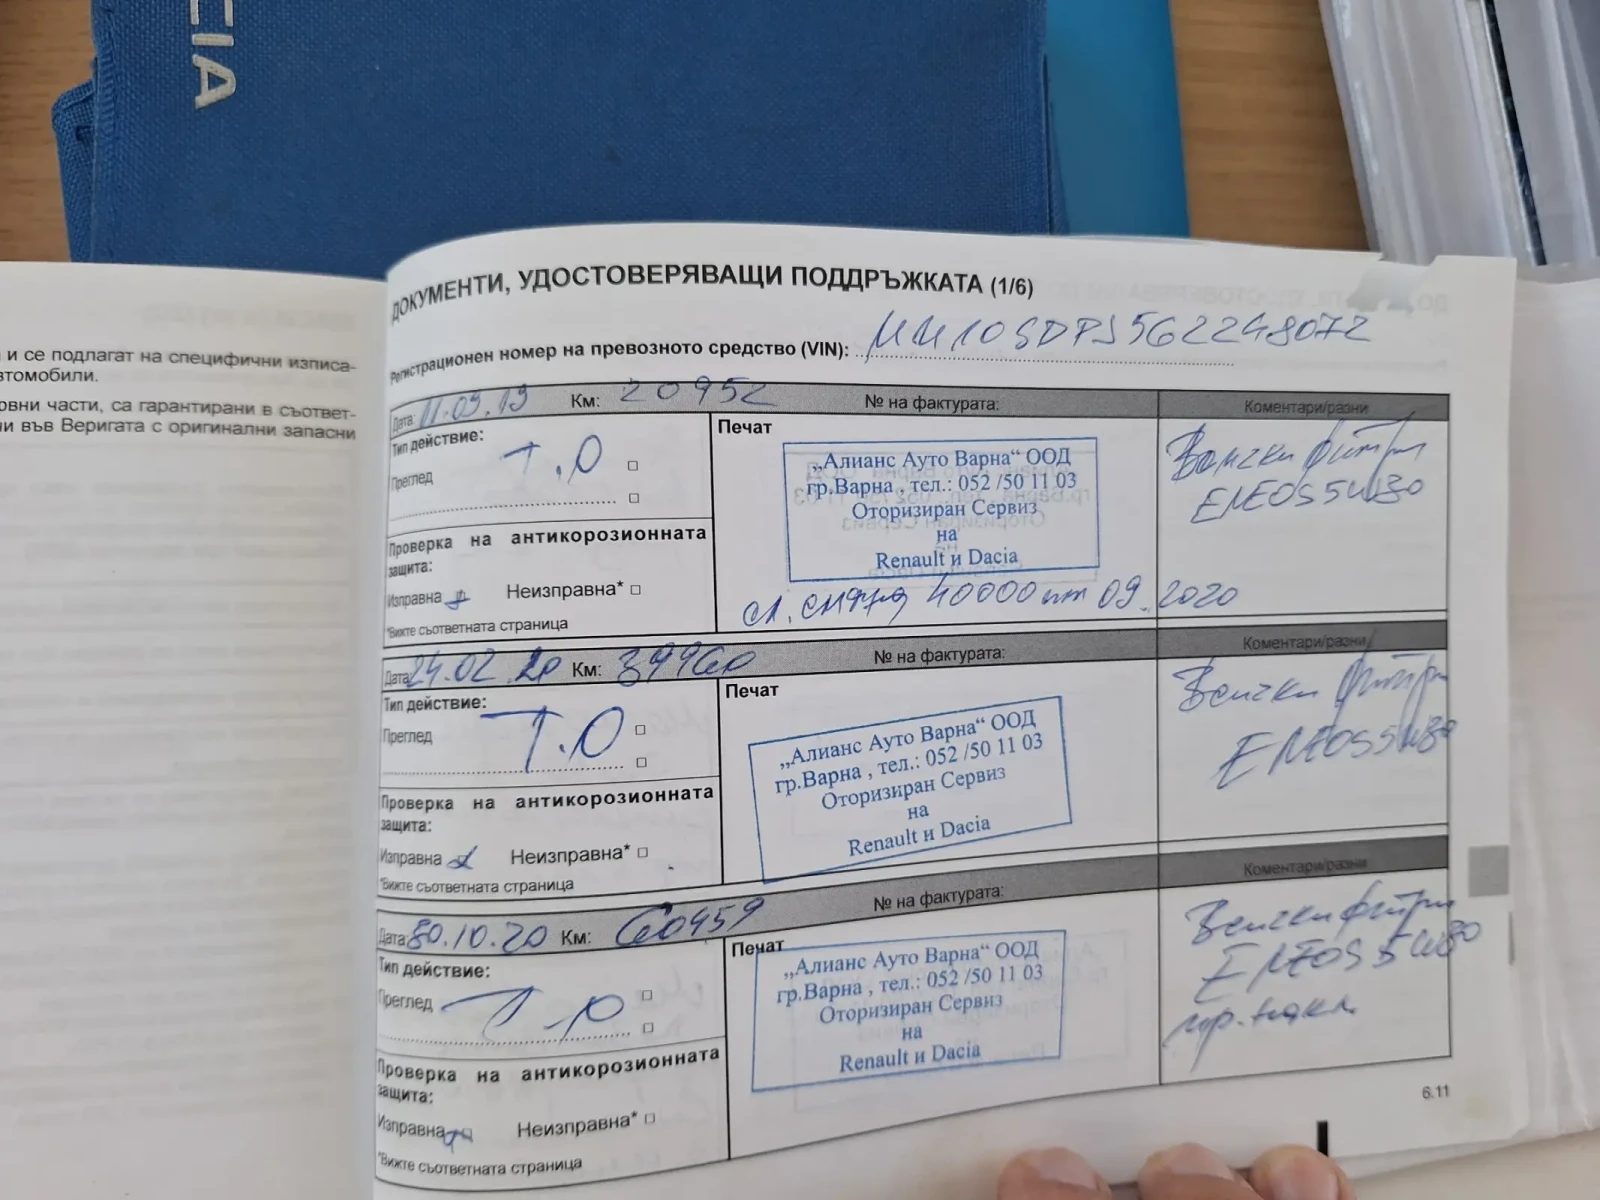 CIA
и се подлагат на специфични изписа-
втомобили.
овни части, са гарантирани в съответ-
ни във Веригата с оригинални запасни
ДОКУМЕНТИ, УДОСТОВЕРЯВАЩИ ПОДДРЪЖКАТА (1/6)
Регистрационен номер на превозното средство (VIN):
Дата: 11.09.19 Км: 20952 № на фактурата: Коментари/разни
Тип действие: Т.О
Преглед
Печат
„Алианс Ауто Варна“ ООД
гр.Варна , тел.: 052 /50 11 03
Оторизиран Сервиз
на
Renault и Dacia
Всички филтри
ENEOS 5W30
Проверка на антикорозионната
защита:
Изправна Неизправна*
*Вижте съответната страница
сл. смяна 40000 09.2020
Дата: 24.02.20 Км: 39960 № на фактурата: Коментари/разни
Тип действие: Т.О
Преглед
Печат
„Алианс Ауто Варна“ ООД
гр.Варна , тел.: 052 /50 11 03
Оторизиран Сервиз
на
Renault и Dacia
Всички филтри
ENEOS 5W30
Проверка на антикорозионната
защита:
Изправна Неизправна*
*Вижте съответната страница
Дата: 30.10.20 Км: 60459 № на фактурата: Коментари/разни
Тип действие: Т.О
Преглед
Печат
„Алианс Ауто Варна“ ООД
гр.Варна , тел.: 052 /50 11 03
Оторизиран Сервиз
на
Renault и Dacia
Всички филтри
ENEOS 5W30
Проверка на антикорозионната
защита:
Изправна Неизправна*
*Вижте съответната страница
6.11